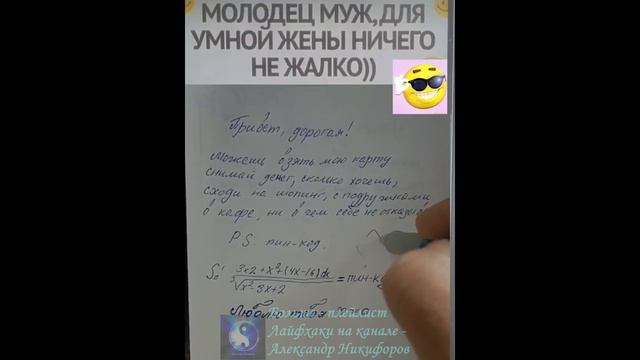 МОЛОДЕЦ МУЖ,ДЛЯ
УМНОЙ ЖЕНЫ НИЧЕГО
НЕ ЖАЛКО))
Привет, дорогая!
Можешь взять мою карту
снимай денег, сколько хочешь,
сходи на шопинг, с подружками
в кафе, ни в чем себе не отказывай
P.S. пин-код.
3x2+x²+(4x-16)dx
= пин-код
Люблю тебя
плейлист
Лайфхаки на канале -
Александр Никифоров